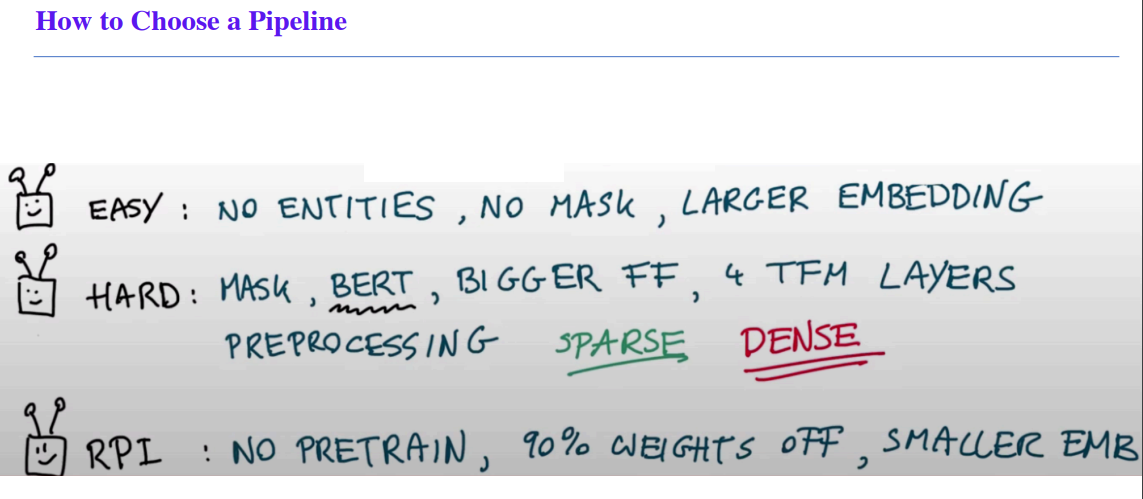 How to Choose a Pipeline
EASY : NO ENTITIES , NO MASK , LARGER EMBEDDING
HARD : MASK , BERT , BIGGER FF , 4 TFM LAYERS
PREPROCESSING SPARSE DENSE
RPI : NO PRETRAIN , 90% WEIGHTS OFF , SMALLER EMB